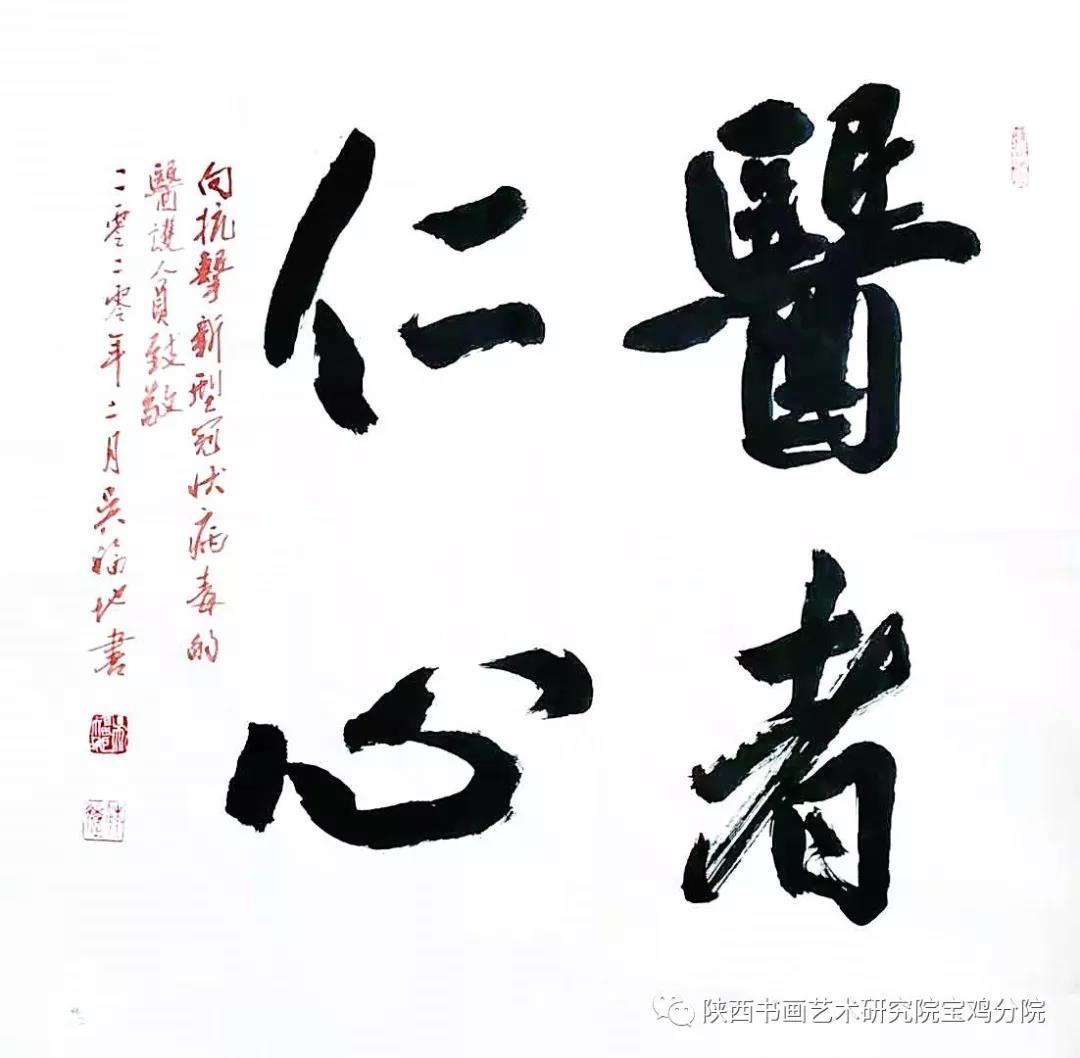 醫者
仁心
向抗擊新型冠狀病毒的
醫護人員致敬
二零二零年二月吳福地書
陕西书画艺术研究院宝鸡分院